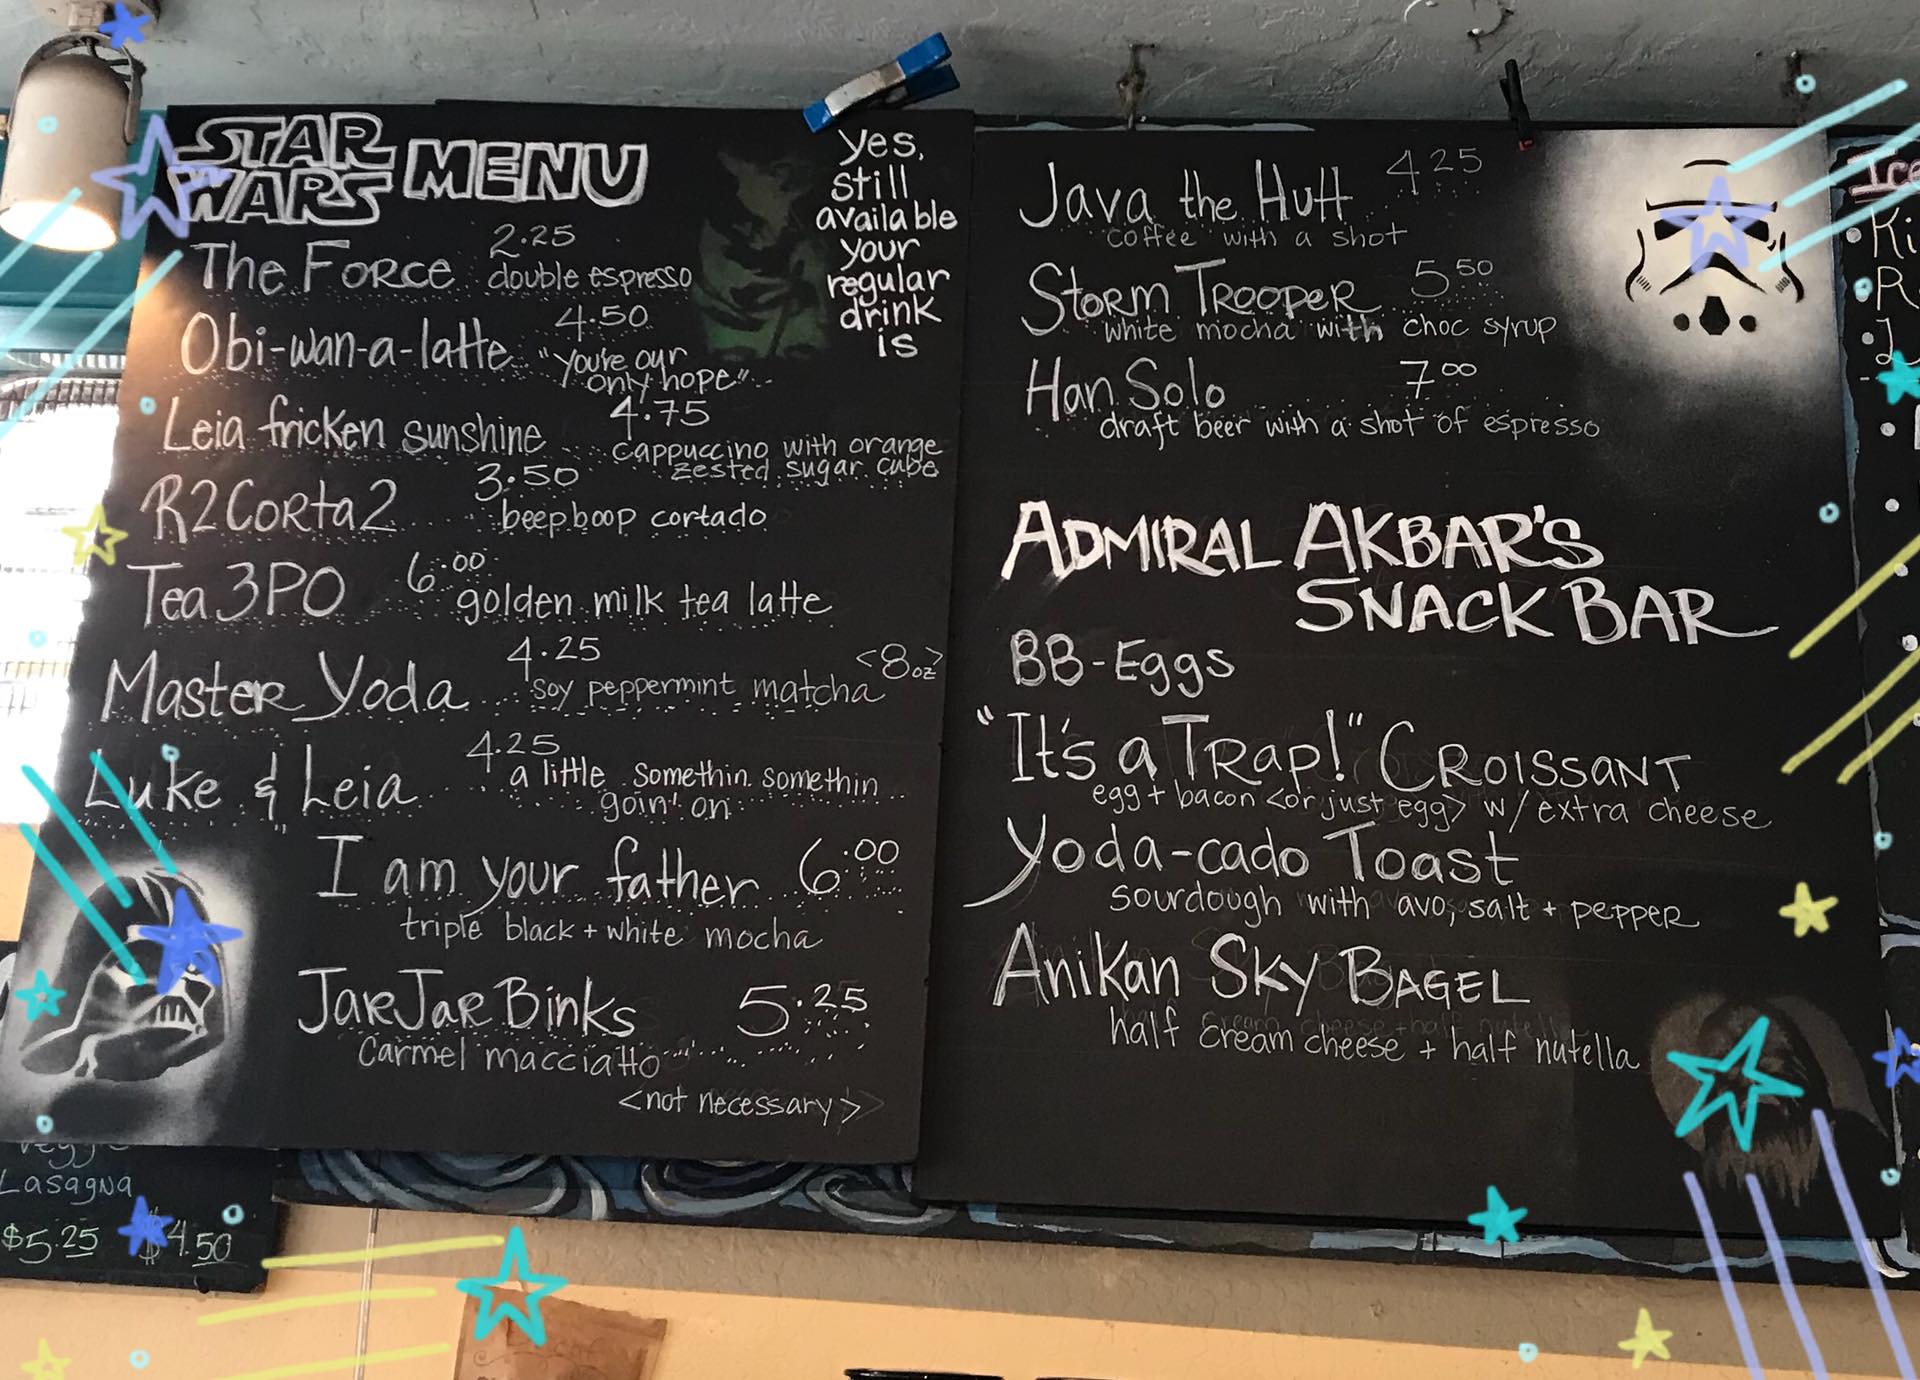 STAR WARS MENU
Yes,
still
available
your
regular
drink
is
The Force 2.25 double espresso
Obi-wan-a-latte 4.50 "you're our
only hope"
Leia fricken sunshine 4.75
cappuccino with orange
zested sugar cube
R2Corta2 3.50
beep boop cortado
Tea 3PO 6.00
golden milk tea latte
Master Yoda 4.25
soy peppermint matcha <8oz>
Luke & Leia 4.25
a little somethin somethin
goin' on
I am your father 6.00
triple black + white mocha
JarJar Binks 5.25
Carmel macciatto
<not necessary>
Java the Hutt 4.25
coffee with a shot
Storm Trooper 5.50
white mocha with choc syrup
Han Solo 7.00
draft beer with a shot of espresso
Admiral Akbar's
Snack Bar
BB-Eggs
"It's a Trap!" Croissant
egg + bacon <or just egg> w/ extra cheese
Yoda-cado Toast
sourdough with avo, salt + pepper
Anikan Sky Bagel
half cream cheese + half nutella
Veggie
Lasagna
$5.25 $4.50